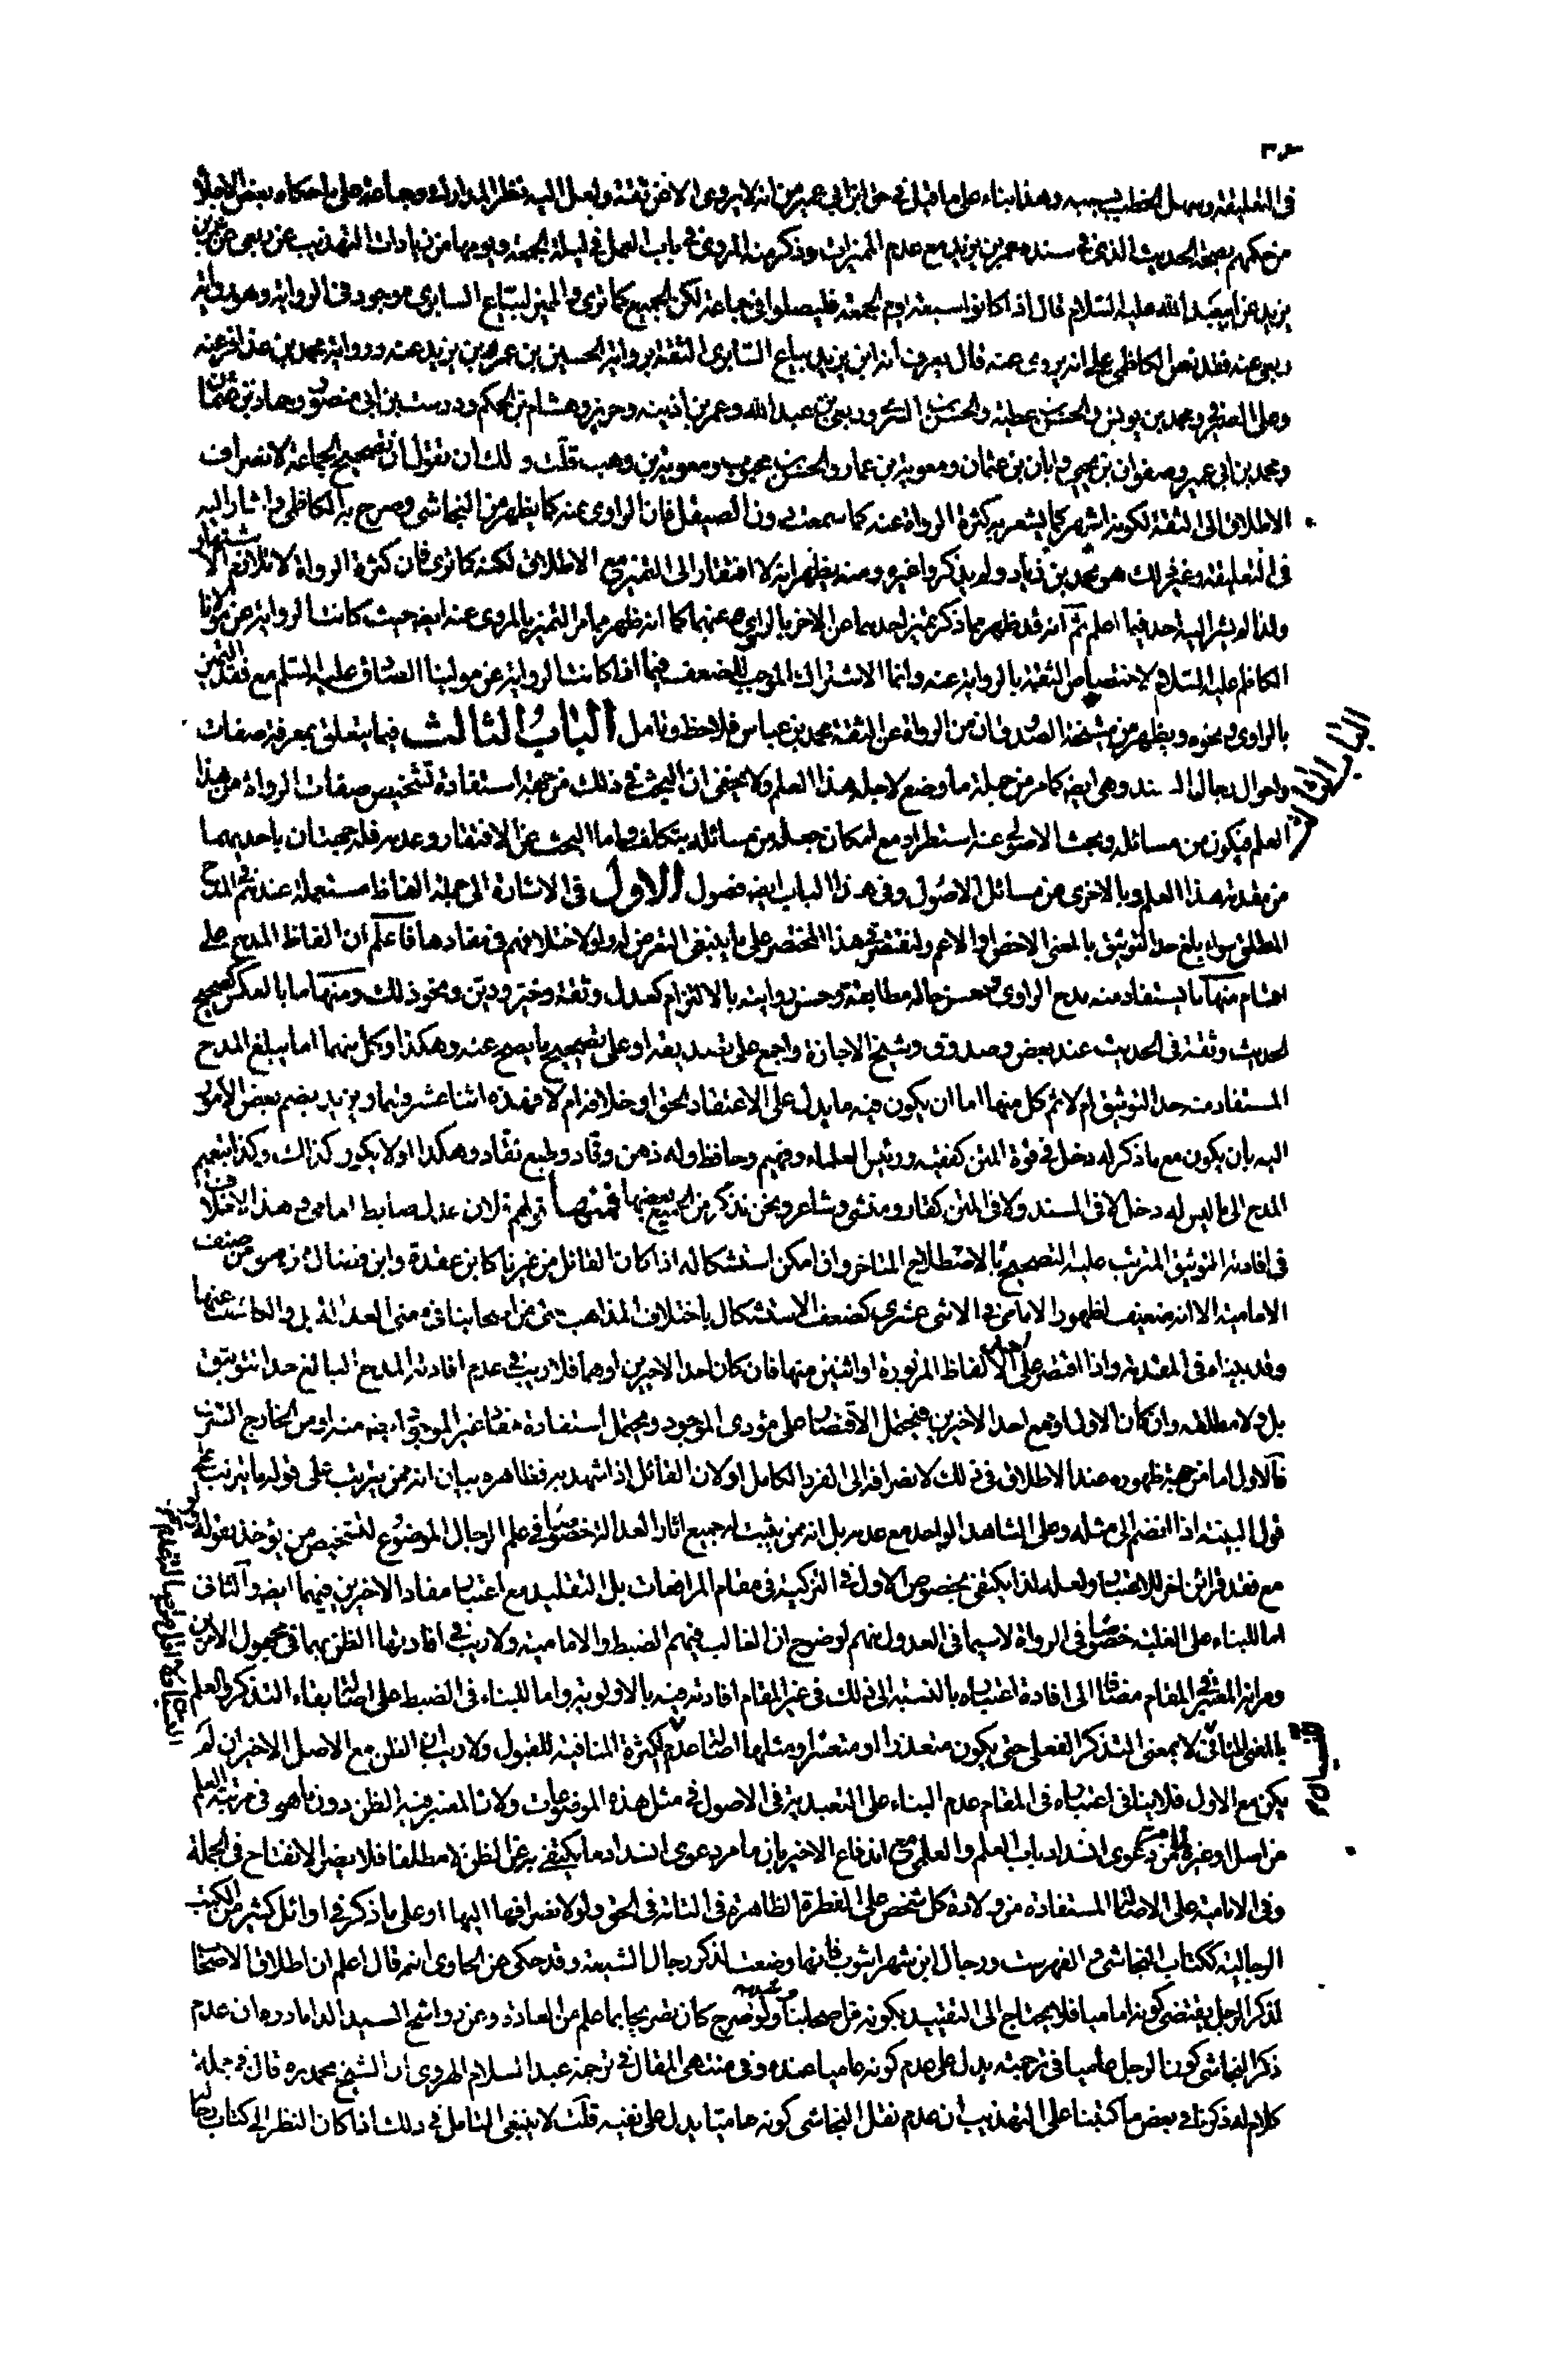 في التعليقة ويسهل الخطب بسببه وهذا بناء على ما قيل في حق ابن ابي عمير من انه لا يروى الا عن ثقة ولعل اليه نظر المدارك وجماعة على ما حكاه بعض الاجلاء
من حكمهم بصحة الحديث الذي في سنده عمر بن يزيد مع عدم المميزات وذكر منه المروى في باب العمل في ليلة الجمعة ويومها من زيادات التهذيب عن ربعى عن عمر بن
يزيد عن ابيعبد الله عليه السلام قال اذا كانوا سبعة يوم الجمعة فليصلوا في جماعة لكن الجميع كما ترى والمميز لبياع السابرى موجود في الرواية وهو رواية
ربعى عنه فقد نص الكاظمي على انه يروى عنه قال يعرف انه ابن يزيد بياع السابرى الثقة برواية الحسين بن عمر بن يزيد عنه ورواية محمد بن عذافر عنه
وعلى الصيرفى ومحمد بن يونس والحسن بن عطية والحسن بن السرى وربعى بن عبد الله وعمر بن اذينه وحريز وهشام بن الحكم ودرست بن ابى منصور وحماد بن عثمان
ومحمد بن ابى عمير وصفوان بن يحيى وابان بن عثمان ومعوية بن عمار والحسن بن محبوب ومعوية بن وهب قلت ولك ان تقول ان تصحيح الجماعة لانصراف
الاطلاق الى الثقة لكونه اشهر كما يشعر به كثرة الرواة عنه كما سمعت دون الصيقل فان الراوى عنه كما يظهر من النجاشى وصرح به الكاظمى واشار اليه
في التعليقة وغير ذلك هو محمد بن زياد ولم يذكروا غيره ومنه يظهر انه لا افتقار الى التميز مع الاطلاق لكنه كما ترى فان كثرة الرواة لا تلازم الاشتهار
ولذا لم يشر اليه احد فيما اعلم ثم انه قد ظهر مما ذكر تميز احدهما عن الاخر بالراوي عنهما كما انه ظهر مما مر التميز بالمروى عنه ايضا حيث كانت الرواية عن مولانا
الكاظم عليه السلام لاختصاص الثقة بالرواية عنه وانما الاشتراك الموجب للضعف فيما اذا كانت الرواية عن مولينا الصادق عليه السلم مع فقد التميز
بالراوى ونحوه ويظهر من مشيخة الصدوق ان من الرواة عن الثقة محمد بن عباس فلاحظ وتامل الباب الثالث فيما يتعلق بمعرفة صفات
واحوال رجال السند وهى ايضا كما مر من جملة ما وضع لاجله هذا العلم ولا يخفى ان البحث في ذلك من جهة استفادة تشخيص صفات الرواة من هذا
العلم فيكون من مسائله وبحث الاصولى عنه استطراد مع امكان جعله من مسائله بتكلف واما البحث عن الافتقار وعدمه فله جهتان باحديهما
من مقدمة هذا العلم وبالاخرى من مسائل الاصول وفى هذا الباب ايضا فصول الاول في الاشارة الى جملة الفاظ مستعملة عندهم في المدح
المطلق سواء بلغ حد التوثيق بالمعنى الاخص او الاعم ولنقتصر في هذا المختصر على ما ينبغى التعرض له ولو لاختلافهم في مفادها فاعلم ان الفاظ المدح على
اقسام منها ما يستفاد منه مدح الراوى وحسن حاله مطابقة وحسن روايته بالالتزام كعدل وثقة وخير ودين ونحو ذلك ومنها ما بالعكس كصحيح
الحديث وثقة في الحديث عند بعض وصدوق وشيخ الاجازة واجمع على تصديقه او على تصحيح ما يصح عنه وهكذا وكل منهما اما يبلغ المدح
المستفاد منه حد التوثيق ام لا ثم كل منها اما ان يكون فيه ما يدل على الاعتقاد الحق او خلافه ام لا فهذه اثنا عشر وربما ويزيد بضم بعض الامور
اليه بان يكون مع ما ذكر له دخل في قوة المتن كفقيه ورئيس العلماء وفهيم وحافظ وله ذهن وقاد وطبع نقاد وهكذا او لا يكون كذلك وكذا بتعميم
المدح الى ما ليس له دخل لا في السند ولا في المتن كقار ومنشى وشاعر ونحن نذكر من الجميع بعضها فمنها قولهم فلان عدل ضابط امامى وهذا لا خلاف
في افادته التوثيق المترتب عليه التصحيح بالاصطلاح المتاخر وان امكن استشكاله اذا كان القائل من غيرنا كابن عقدة وابن فضال او من صنف
الامامية الا انه ضعيف لظهور الامامى في الاثنى عشرى كضعف الاستشكال باختلاف المذاهب حتى من اصحابنا في معنى العدالة بل والكاشف عنها
وقد بيناه في المقدمة واذا اقتصر على احد الالفاظ المزبورة او اثنين منها فان كان احد الاخيرين او هما فلا ريب في عدم افادته المدح البالغ حد التوثيق
بل ولا مطلقه وان كان الاول او مع احد الاخيرين فيحتمل الاقتصار على مؤدى الموجود ويحتمل استفادة مفاد غير الموجود ايضا منه او من الخارج
فالاول اما من جهة ظهوره عند الاطلاق في ذلك لانصرافه الى الفرد الكامل او لان القائل اذا شهد به فظاهره بيان انه ممن يترتب على قوله ما يترتب على
قول البينة اذا انضم الى مثله وعلى الشاهد الواحد مع عدمه بل انه ممن يثبت له جميع اثار العدالة خصوصا في علم الرجال الموضوع لتشخيص من يؤخذ بقوله
مع فقد قرائن اخر للاعتبار ولعله لذا يكتفى بخصوص الاول في التزكية في مقام المرافعات بل التقليد مع اعتبار مفاد الاخيرين فيهما ايضا والثانى
اما للبناء على الغلبة خصوصا في الرواة لا سيما في العدول منهم لوضوح ان الغالب فيهم الضبط والامامية ولا ريب في افادتها الظن بهما في مجهول الامرين
ومراتبه المعتبر في المقام مضافا الى افادة اعتباره بالنسبة الى ذلك في غير المقام افادته فيه بالاولوية واما للبناء في الضبط على اصالة بقاء التذكر والعلم
بالمعنى الثانى لا بمعنى التذكر الفعلى حتى يكون متعذرا او متعسرا ومثلها اصالة عدم الكثرة المنافية للقبول ولا ريب ان الظن مع الاصل الاخير ان لم
يكن مع الاول فلا ينافى اعتباره في المقام عدم البناء على التعبدية في الاصول في مثل هذه الموضوعات ولان المعتبر فيه الظن دون ما هو في مرتبة العلم
من اصل او غيره دعوى انسداد باب العلم والعلمى مع اندفاع الاخير بان ما مر دعوى انسداد ما يكتفى به عن الظن لا مطلقا فلا يضر الانفتاح في الجملة
وفي الامامية على الاصالة المستفادة من ولادة كل شخص على الفطرة الظاهرة في الثانية في الحق ولو لانصرافها اليها او على ما ذكر في اوائل كثير من الكتب
الرجالية ككتاب النجاشى والفهرست ورجال ابن شهراشوب فانها وضعت لذكر رجال الشيعة وقد حكى عن الحاوى انه قال اعلم ان اطلاق الاصحاب
لذكر الرجل يقتضى كونه اماميا فلا يحتاج الى التقييد بكونه من اصحابنا وشبهه ولو صرح كان تصريحا بما علم من العادة وعن رواشح السيد الداماد ره ان عدم
ذكر النجاشى كون الرجل عاميا في ترجمته يدل على عدم كونه عاميا عنده وفي منتهى المقال في ترجمة عبد السلام الهروى ان الشيخ محمد ره قال في جملة
كلام له ذكرنا في بعض ما كتبنا على التهذيب ان عدم نقل النجاشى كونه عاميا يدل على نفيه قلت لا ينبغى التامل في ذلك اذا كان النظر الى كتاب
الباب الثالث